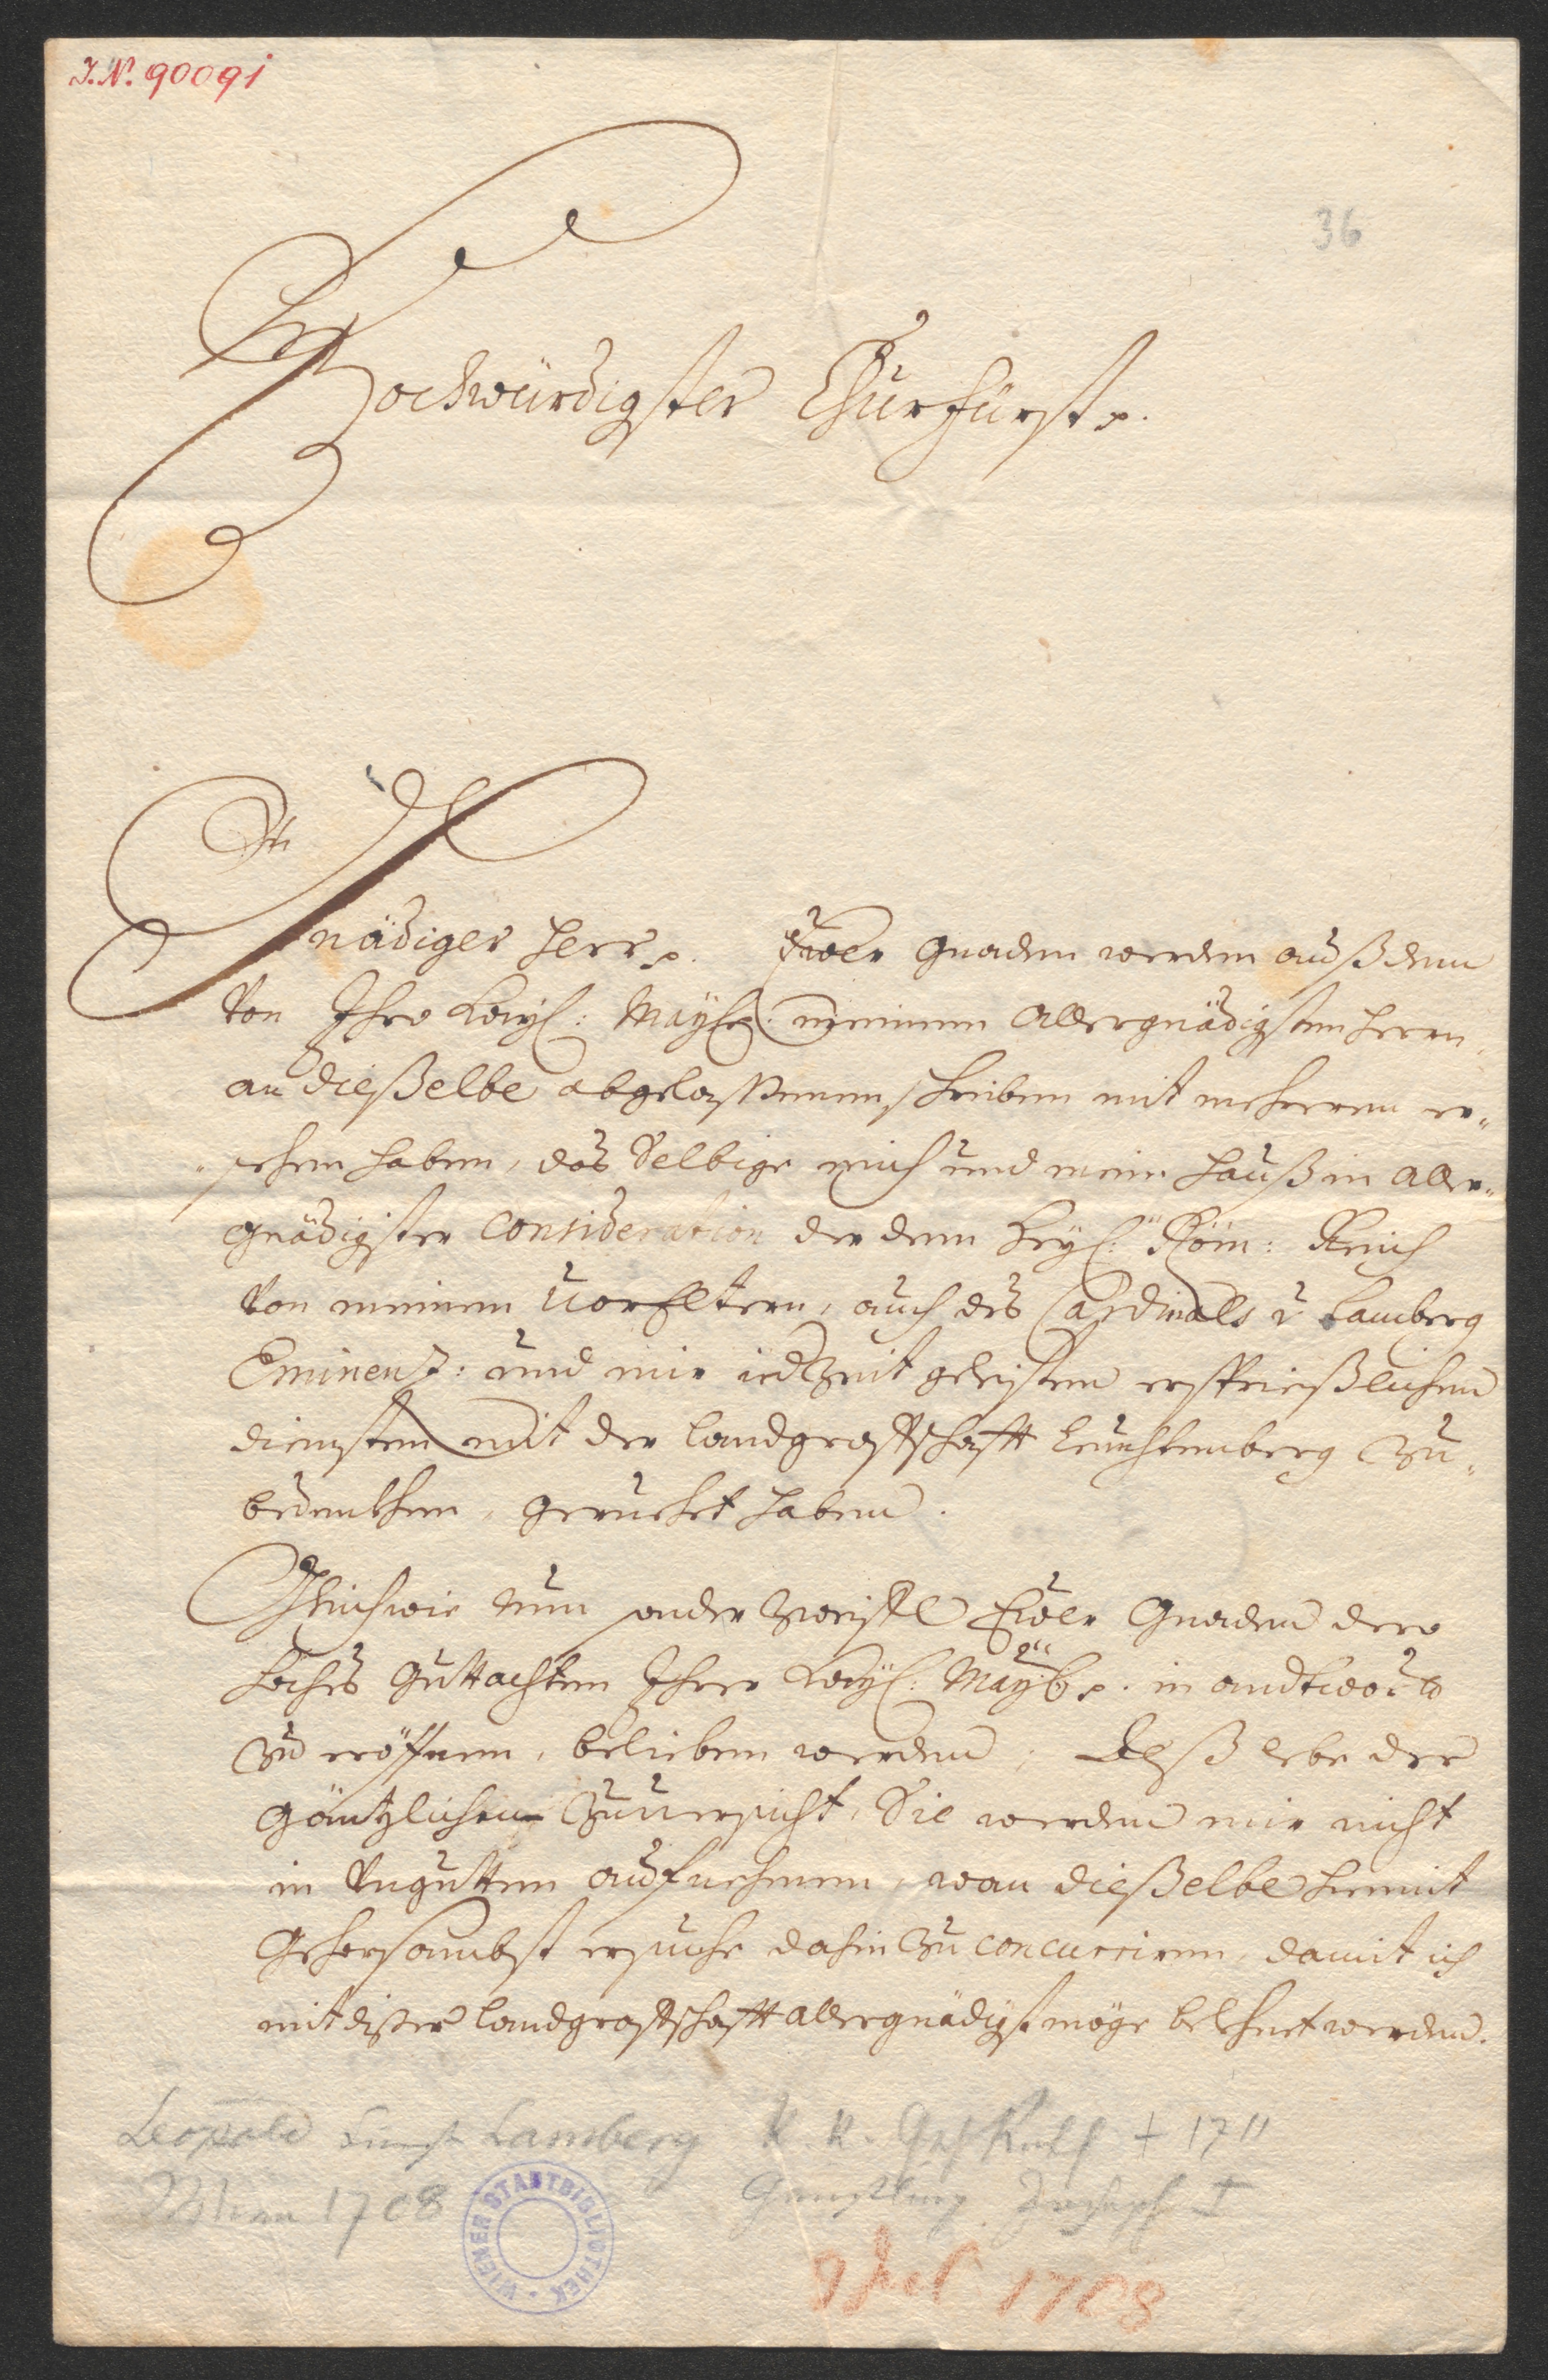 I. N. 90091
36
Hochwürdigster Churfürst p.
Gnädiger Herr p. Ewer Gnaden werden auß dem
Von Ihro Kayl: Mayst: meinem Allergnädigsten Herrn
an dießelbe abgelaßenen schreiben mit mehrerem er-
sehen haben, das Selbige mich und mein Hauß in Aller-
gnädigster Consideration der dem Heyl: Röm: Reich
Von meinen VorEltern, auch des Cardinals v Lamberg
Eminenz: und mir iedzeit geleisten ersprießlichen
diensten mit der Landgraffschafft Leuchtenberg zu-
bedenkhen, geruehet haben.
Gleichwie nun ausser Zweiffl Ewer Gnaden dero
hoches Guttachten Ihrer Kayl: Mayt p. in andtwordt
zu eröffnen, belieben werden; Alß lebe der
Gäntzlichen Zuuersicht, Sie werden mir nicht
in Vngutten aufnehmen, wan dießelbe hiemit
Gehorsambst ersuche dahin zu concurriren, damit ich
mit dißer Landgraffschafft allergnädigst möge belehnet werden.
Leopold Lamberg K. K. + 1711
Wien 1708 Günstling Joseph I
WIENER STADTBIBLIOTHEK
1708